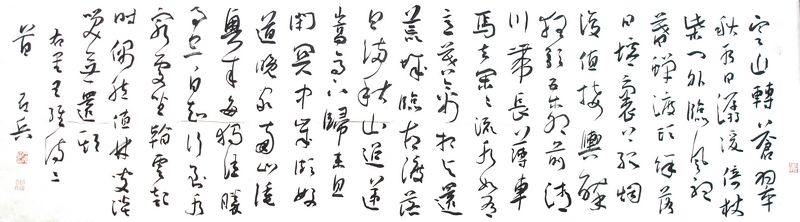 空山轉蒼翠
秋水日潺湲倚杖
柴門外臨風聽
暮蟬渡頭餘落
日墟裏上孤烟
復值接輿醉
狂歌五柳前清
川帶長薄車
馬去閑々流水如有
意暮禽相與還
荒城臨古渡落
日滿秋山迢遞
嵩高下歸來且
閉關中歲頗好
道晚家南山陲
興來每獨往勝
事空自知行到水
窮處坐看雲起
時偶然值林叟談
笑無還期
右王維詩
首